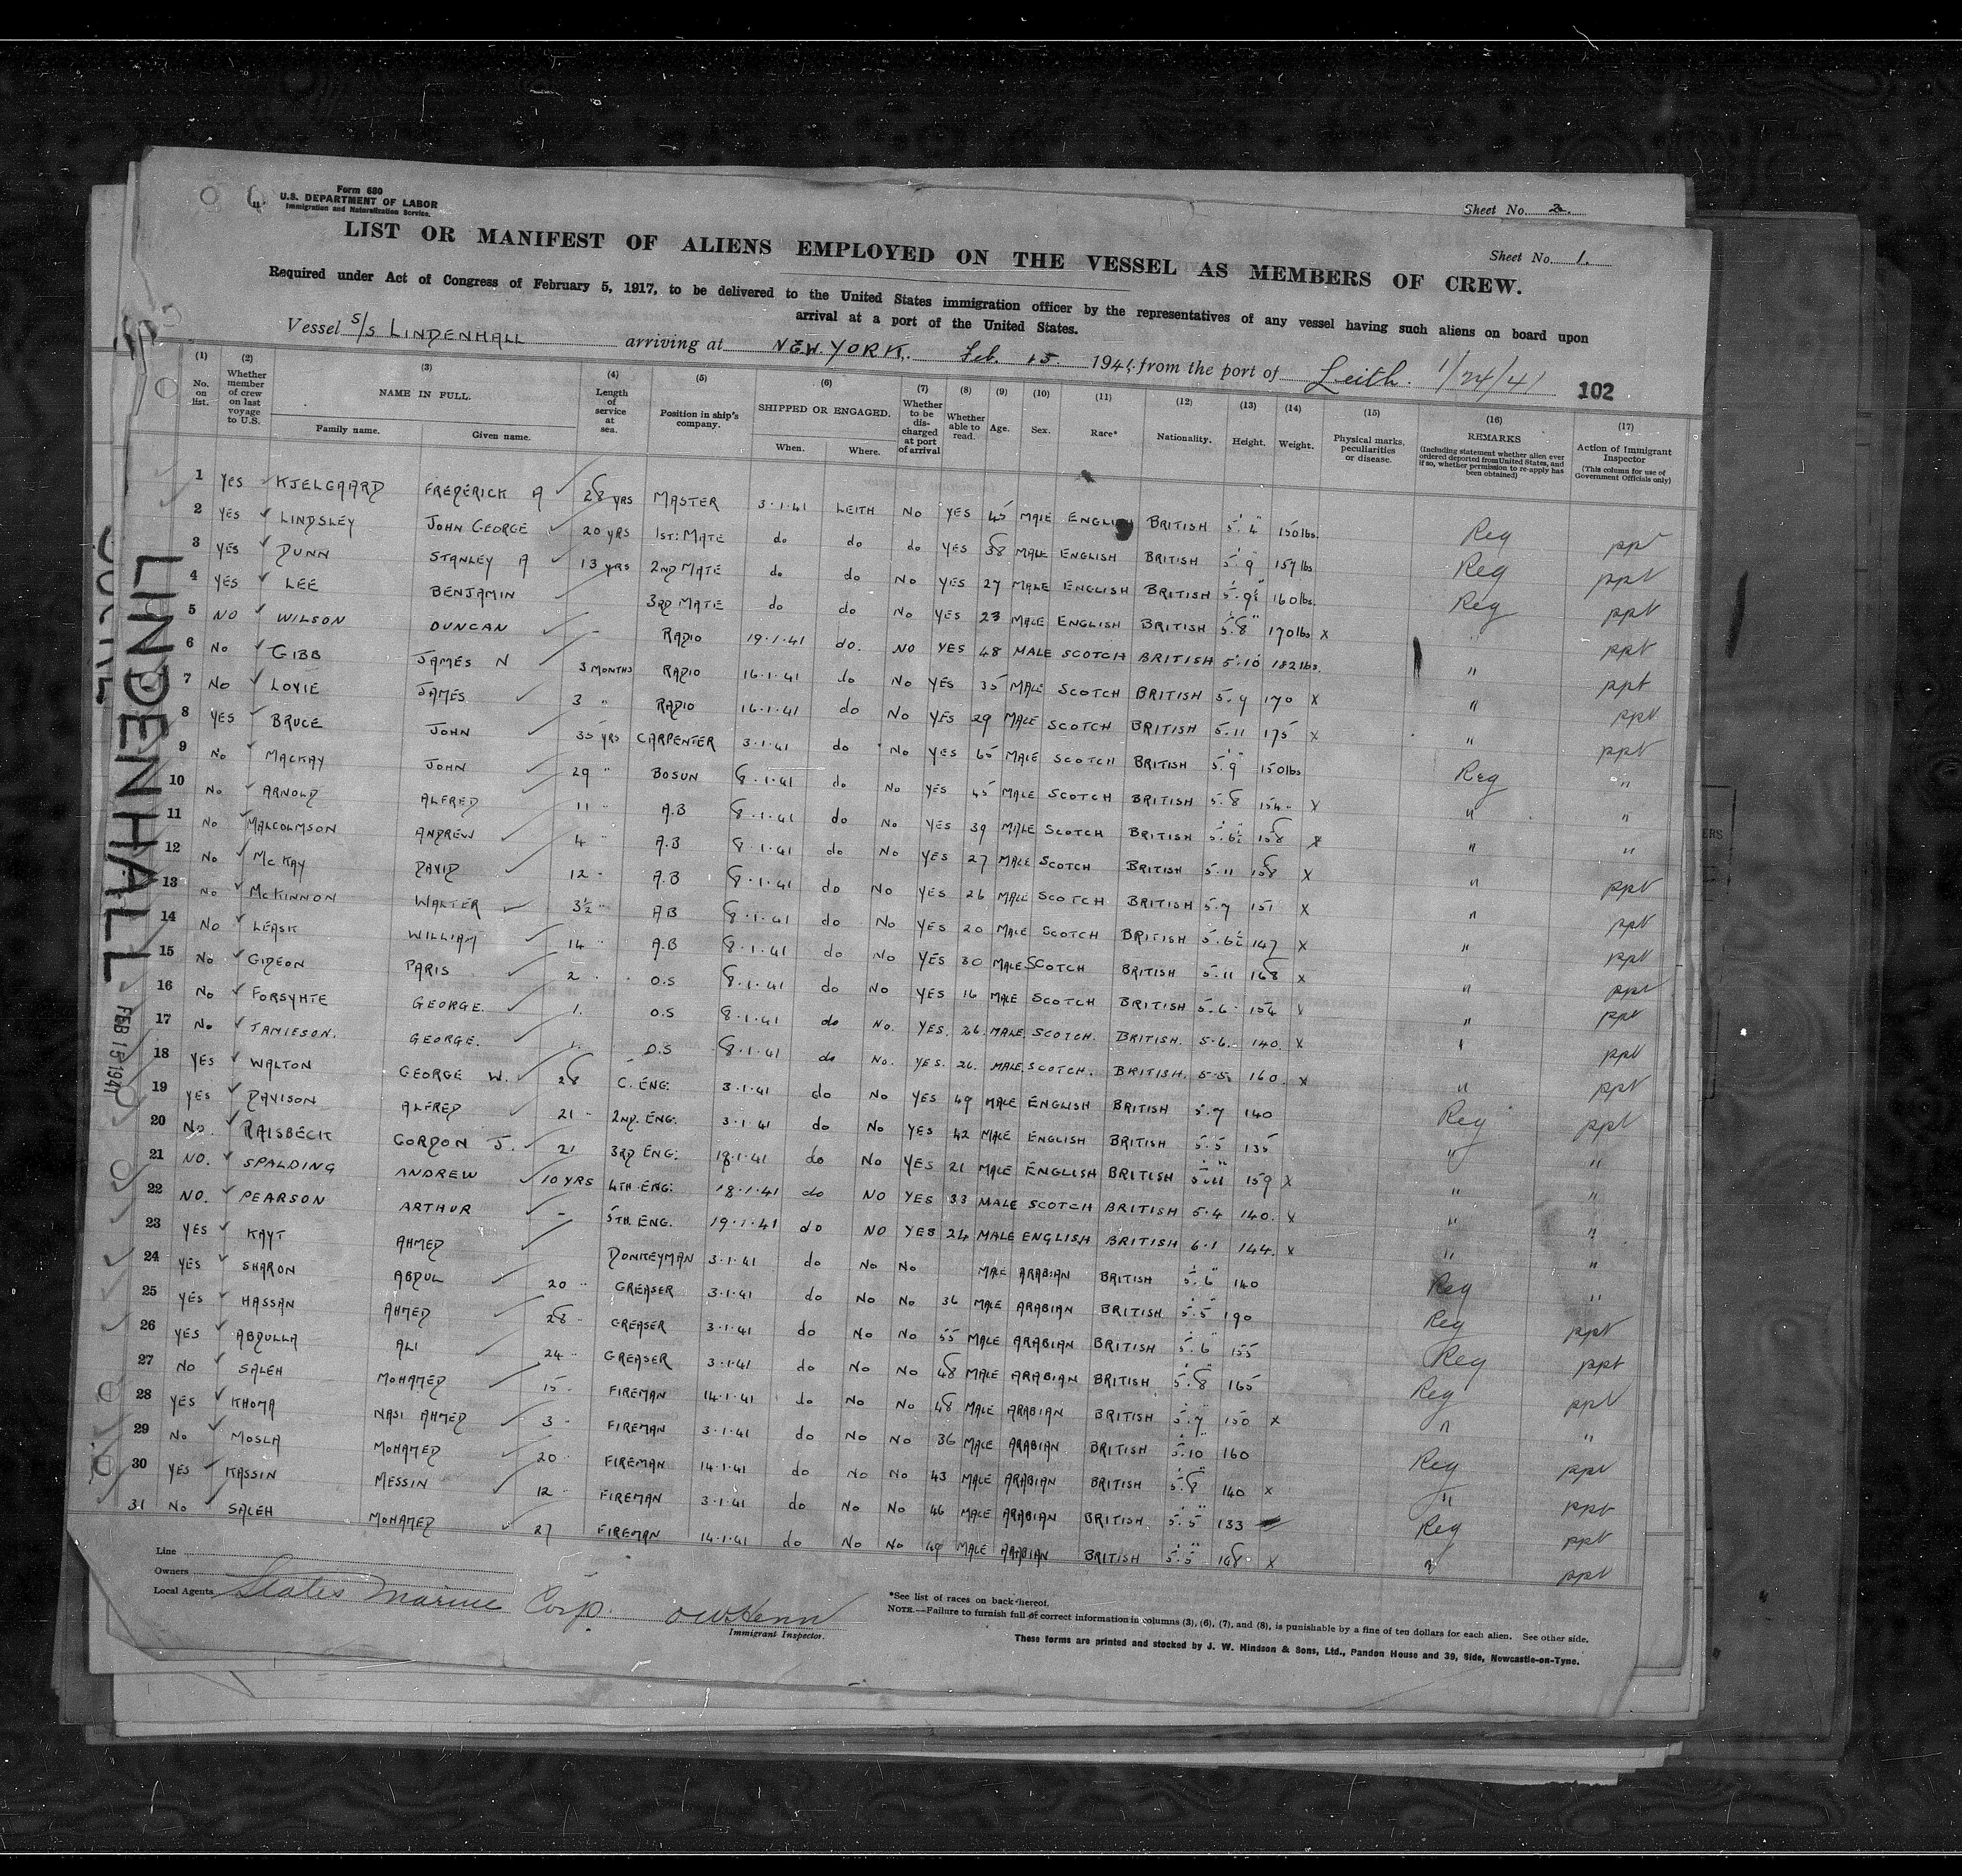 Form 680
U.S. DEPARTMENT OF LABOR
Immigration and Naturalization Service.
Sheet No. 2.
Sheet No. 1.
LIST OR MANIFEST OF ALIENS EMPLOYED ON THE VESSEL AS MEMBERS OF CREW.
Required under Act of Congress of February 5, 1917, to be delivered to the United States immigration officer by the representatives of any vessel having such aliens on board upon
arrival at a port of the United States.
Vessel S/S LINDENHALL arriving at NEW YORK. Feb. 15. 1941. from the port of Leith. 1/24/41 102
(1) No. on list. (2) Whether member of crew on last voyage to U.S. (3) NAME IN FULL. Family name. Given name. (4) Length of service at sea. (5) Position in ship's company. (6) SHIPPED OR ENGAGED. When. Where. (7) Whether to be discharged at port of arrival (8) Whether able to read. (9) Age. (10) Sex. (11) Race* (12) Nationality. (13) Height. (14) Weight. (15) Physical marks, peculiarities or disease. (16) REMARKS (Including statement whether alien ever ordered deported from United States, and if so, whether permission to re-apply has been obtained) (17) Action of Immigrant Inspector (This column for use of Government Officials only)
1 YES KJELGAARD FREDERICK A 28 YRS MASTER 3.1.41 LEITH NO YES 45 MALE ENGLISH BRITISH 5'.4" 150 lbs. Reg ppt
2 YES LINDSLEY JOHN GEORGE 20 YRS 1ST: MATE do do do YES 38 MALE ENGLISH BRITISH 5'.9" 157 lbs Reg ppt
3 YES DUNN STANLEY A 13 YRS 2ND MATE do do NO YES 27 MALE ENGLISH BRITISH 5'.9½" 160 lbs. Reg ppt
4 YES LEE BENJAMIN 3RD MATE do do NO YES 23 MALE ENGLISH BRITISH 5'.8" 170 lbs X " ppt
5 NO WILSON DUNCAN - RADIO 19.1.41 do. NO YES 48 MALE SCOTCH BRITISH 5'.10" 182 lbs. " ppt
6 NO GIBB JAMES N 3 MONTHS RADIO 16.1.41 do NO YES 35 MALE SCOTCH BRITISH 5.9 170 X " ppt
7 NO LOVIE JAMES 3 " RADIO 16.1.41 do NO YES 29 MALE SCOTCH BRITISH 5.11 175 X " ppt
8 YES BRUCE JOHN 35 YRS CARPENTER 3.1.41 do NO YES 65 MALE SCOTCH BRITISH 5'.9" 150 lbs Reg "
9 NO MACKAY JOHN 29 " BOSUN 8.1.41 do NO YES 45 MALE SCOTCH BRITISH 5.8 154 X " "
10 NO ARNOLD ALFRED 11 " A.B 8.1.41 do NO YES 39 MALE SCOTCH BRITISH 5.6½ 158 X " "
11 NO MALCOLMSON ANDREW 4 " A.B 8.1.41 do NO YES 27 MALE SCOTCH BRITISH 5.11 158 X " ppt
12 NO MCKAY DAVID 12 " A.B 8.1.41 do NO YES 26 MALE SCOTCH BRITISH 5.7 151 X " ppt
13 NO MCKINNON WALTER 3½ " AB 8.1.41 do NO YES 20 MALE SCOTCH BRITISH 5.6½ 147 X " ppt
14 NO LEASK WILLIAM 14 " A.B 8.1.41 do NO YES 30 MALE SCOTCH BRITISH 5.11 168 X " ppt
15 NO GIDEON PARIS 2 O.S 8.1.41 do NO YES 16 MALE SCOTCH BRITISH 5.6 154 X " ppt
16 NO FORSYHTE GEORGE. 1. O.S 8.1.41 do NO. YES. 26. MALE SCOTCH. BRITISH. 5.6. 140. X " ppt
17 NO JAMIESON. GEORGE. 1. O.S 8.1.41 do NO. YES. 26. MALE. SCOTCH. BRITISH. 5.5. 160. X " ppt
18 YES WALTON GEORGE W. 28 C. ENG. 3.1.41 do NO YES 49 MALE ENGLISH BRITISH 5.7 140 Reg ppt
19 YES DAVISON ALFRED 21 " 2ND. ENG. 3.1.41 do NO YES 42 MALE ENGLISH BRITISH 5.5 135 " "
20 NO. RAISBECK GORDON J. 21 3RD ENG: 18.1.41 do NO YES 21 MALE ENGLISH BRITISH 5'.11" 159 X " "
21 NO. SPALDING ANDREW 10 YRS 4TH ENG: 18.1.41 do NO YES 33 MALE SCOTCH BRITISH 5.4 140. X " "
22 NO. PEARSON ARTHUR - 5TH. ENG. 19.1.41 do NO YES 24 MALE ENGLISH BRITISH 6.1 144. X " "
23 YES KAYT AHMED DONKEYMAN 3.1.41 do NO NO MALE ARABIAN BRITISH 5'.6" 140 Reg "
24 YES SHARON ABDUL 20 " GREASER 3.1.41 do NO NO 36 MALE ARABIAN BRITISH 5'.5" 190 Reg ppt
25 YES HASSAN AHMED 28 " GREASER 3.1.41 do NO NO 55 MALE ARABIAN BRITISH 5'.6" 155 Reg ppt
26 YES ABDULLA ALI 24 " GREASER 3.1.41 do NO NO 48 MALE ARABIAN BRITISH 5'.8" 165 Reg ppt
27 NO SALEH MOHAMED 15 FIREMAN 14.1.41 do NO NO 48 MALE ARABIAN BRITISH 5'.7" 150 X " "
28 YES KHOMA NASI AHMED 3 FIREMAN 3.1.41 do NO NO 36 MALE ARABIAN BRITISH 5'.10" 160 Reg ppt
29 NO MOSLA MOHAMED 20 FIREMAN 14.1.41 do NO NO 43 MALE ARABIAN BRITISH 5'.8" 140 X " ppt
30 YES KASSIN MESSIN 12 FIREMAN 3.1.41 do NO NO 46 MALE ARABIAN BRITISH 5'.5" 133 Reg ppt
31 NO SALEH MOHAMED 27 FIREMAN 14.1.41 do NO NO 49 MALE ARABIAN BRITISH 5'.5" 148 X " ppt
LINDENHALL
FEB 15 1941
Line
Owners
Local Agents States Marine Corp.
Immigrant Inspector.
*See list of races on back hereof.
NOTE.—Failure to furnish full or correct information in columns (3), (6), (7), and (8), is punishable by a fine of ten dollars for each alien. See other side.
These forms are printed and stocked by J. W. Hindson & Sons, Ltd., Pandon House and 39, Side, Newcastle-on-Tyne.